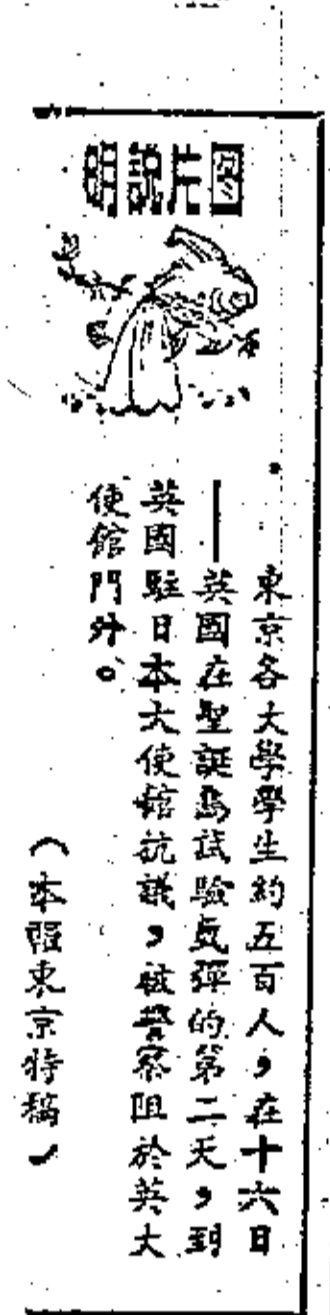 圖片說明
東京各大學學生約五百人，在十六日
——英國在聖誕島試驗氫彈的第二天，到
英國駐日本大使館抗議，被警察阻於英大
使館門外。
（本報東京特稿）